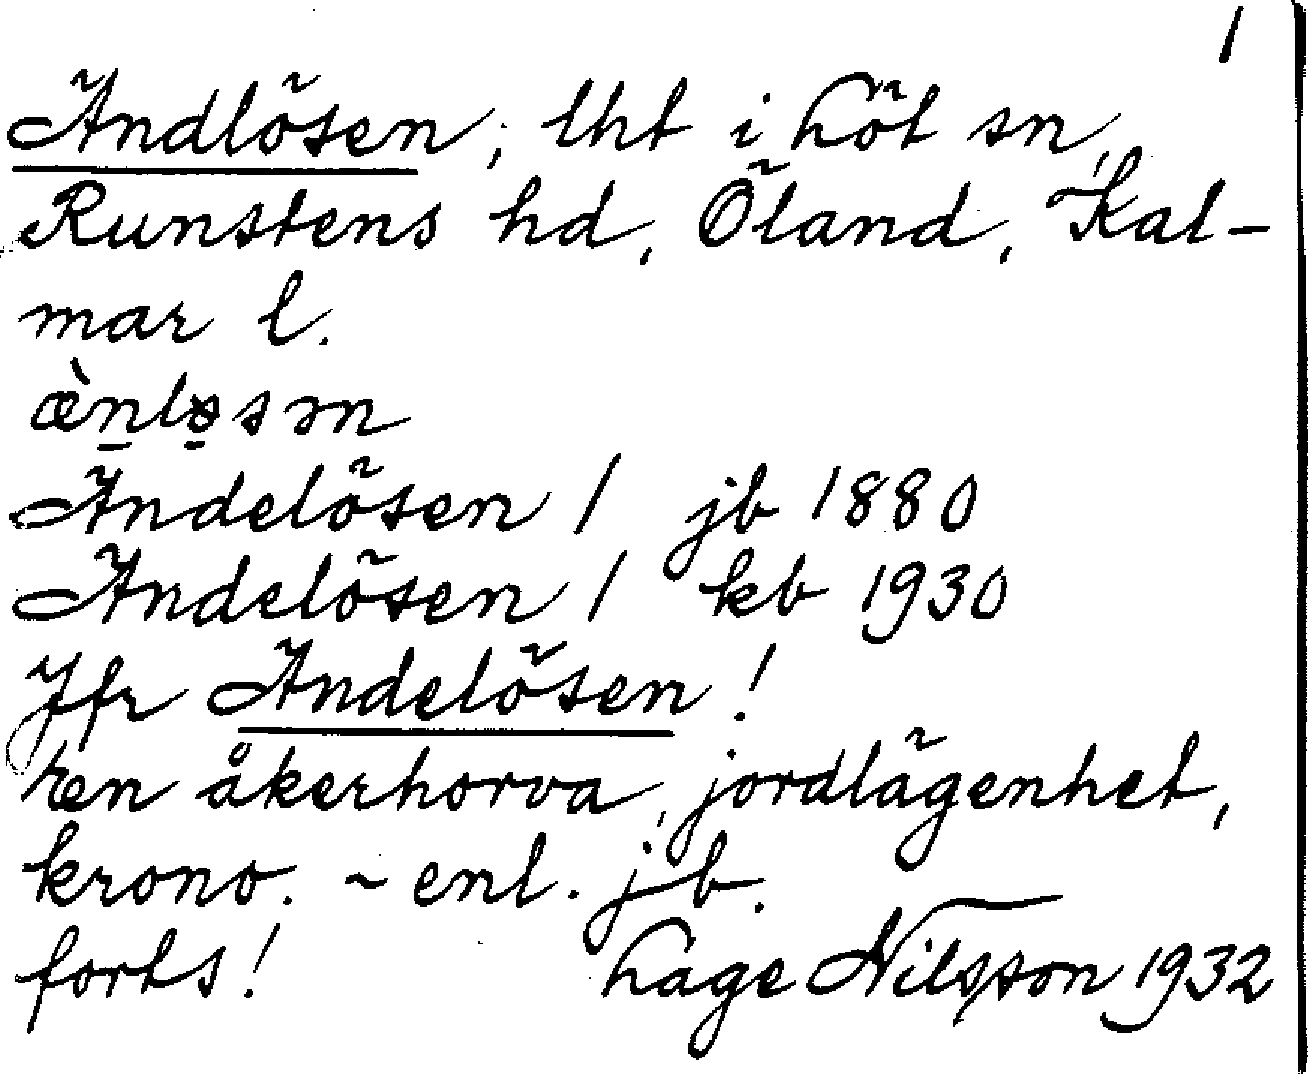 1
Ändlösen, lht i Löt sn,
Runstens hd, Öland, Kal-
mar l.
æ̀nløsən
Ändelösen 1 jb 1880
Ändelösen 1 kb 1930
Jfr Ändelösen!
En åkerhorva, jordlägenhet,
krono. ~ enl. jb.
forts! Lage Nilsson 1932